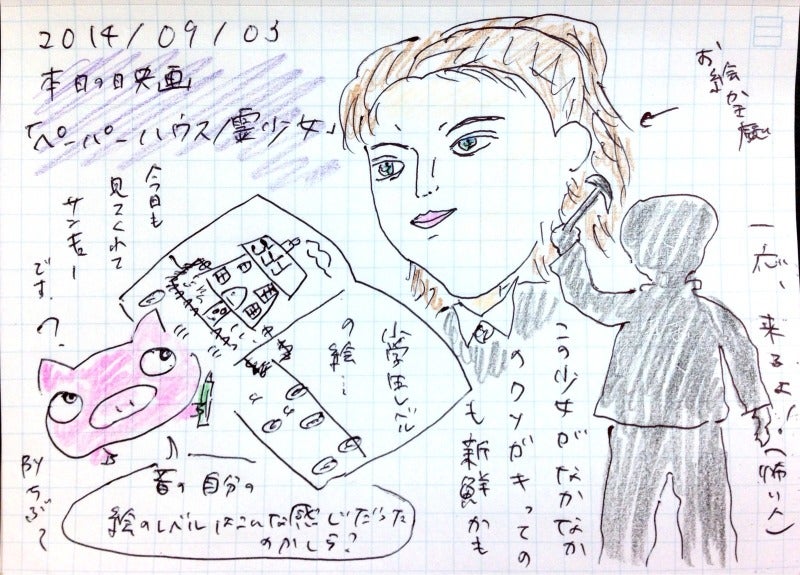 2014/09/03
本日の映画
「ペーパーハウス/霊少女」
お絵かき
今日も
見てくれて
サンキュー
です。
小学生レベル
の絵…
この少女がなかなか
のクソガキっての
も新鮮かも
一応、来るよ!(怖い人)
昔の自分の
絵のレベルはこんな感じだった
のかしら?
BYちぶ〜